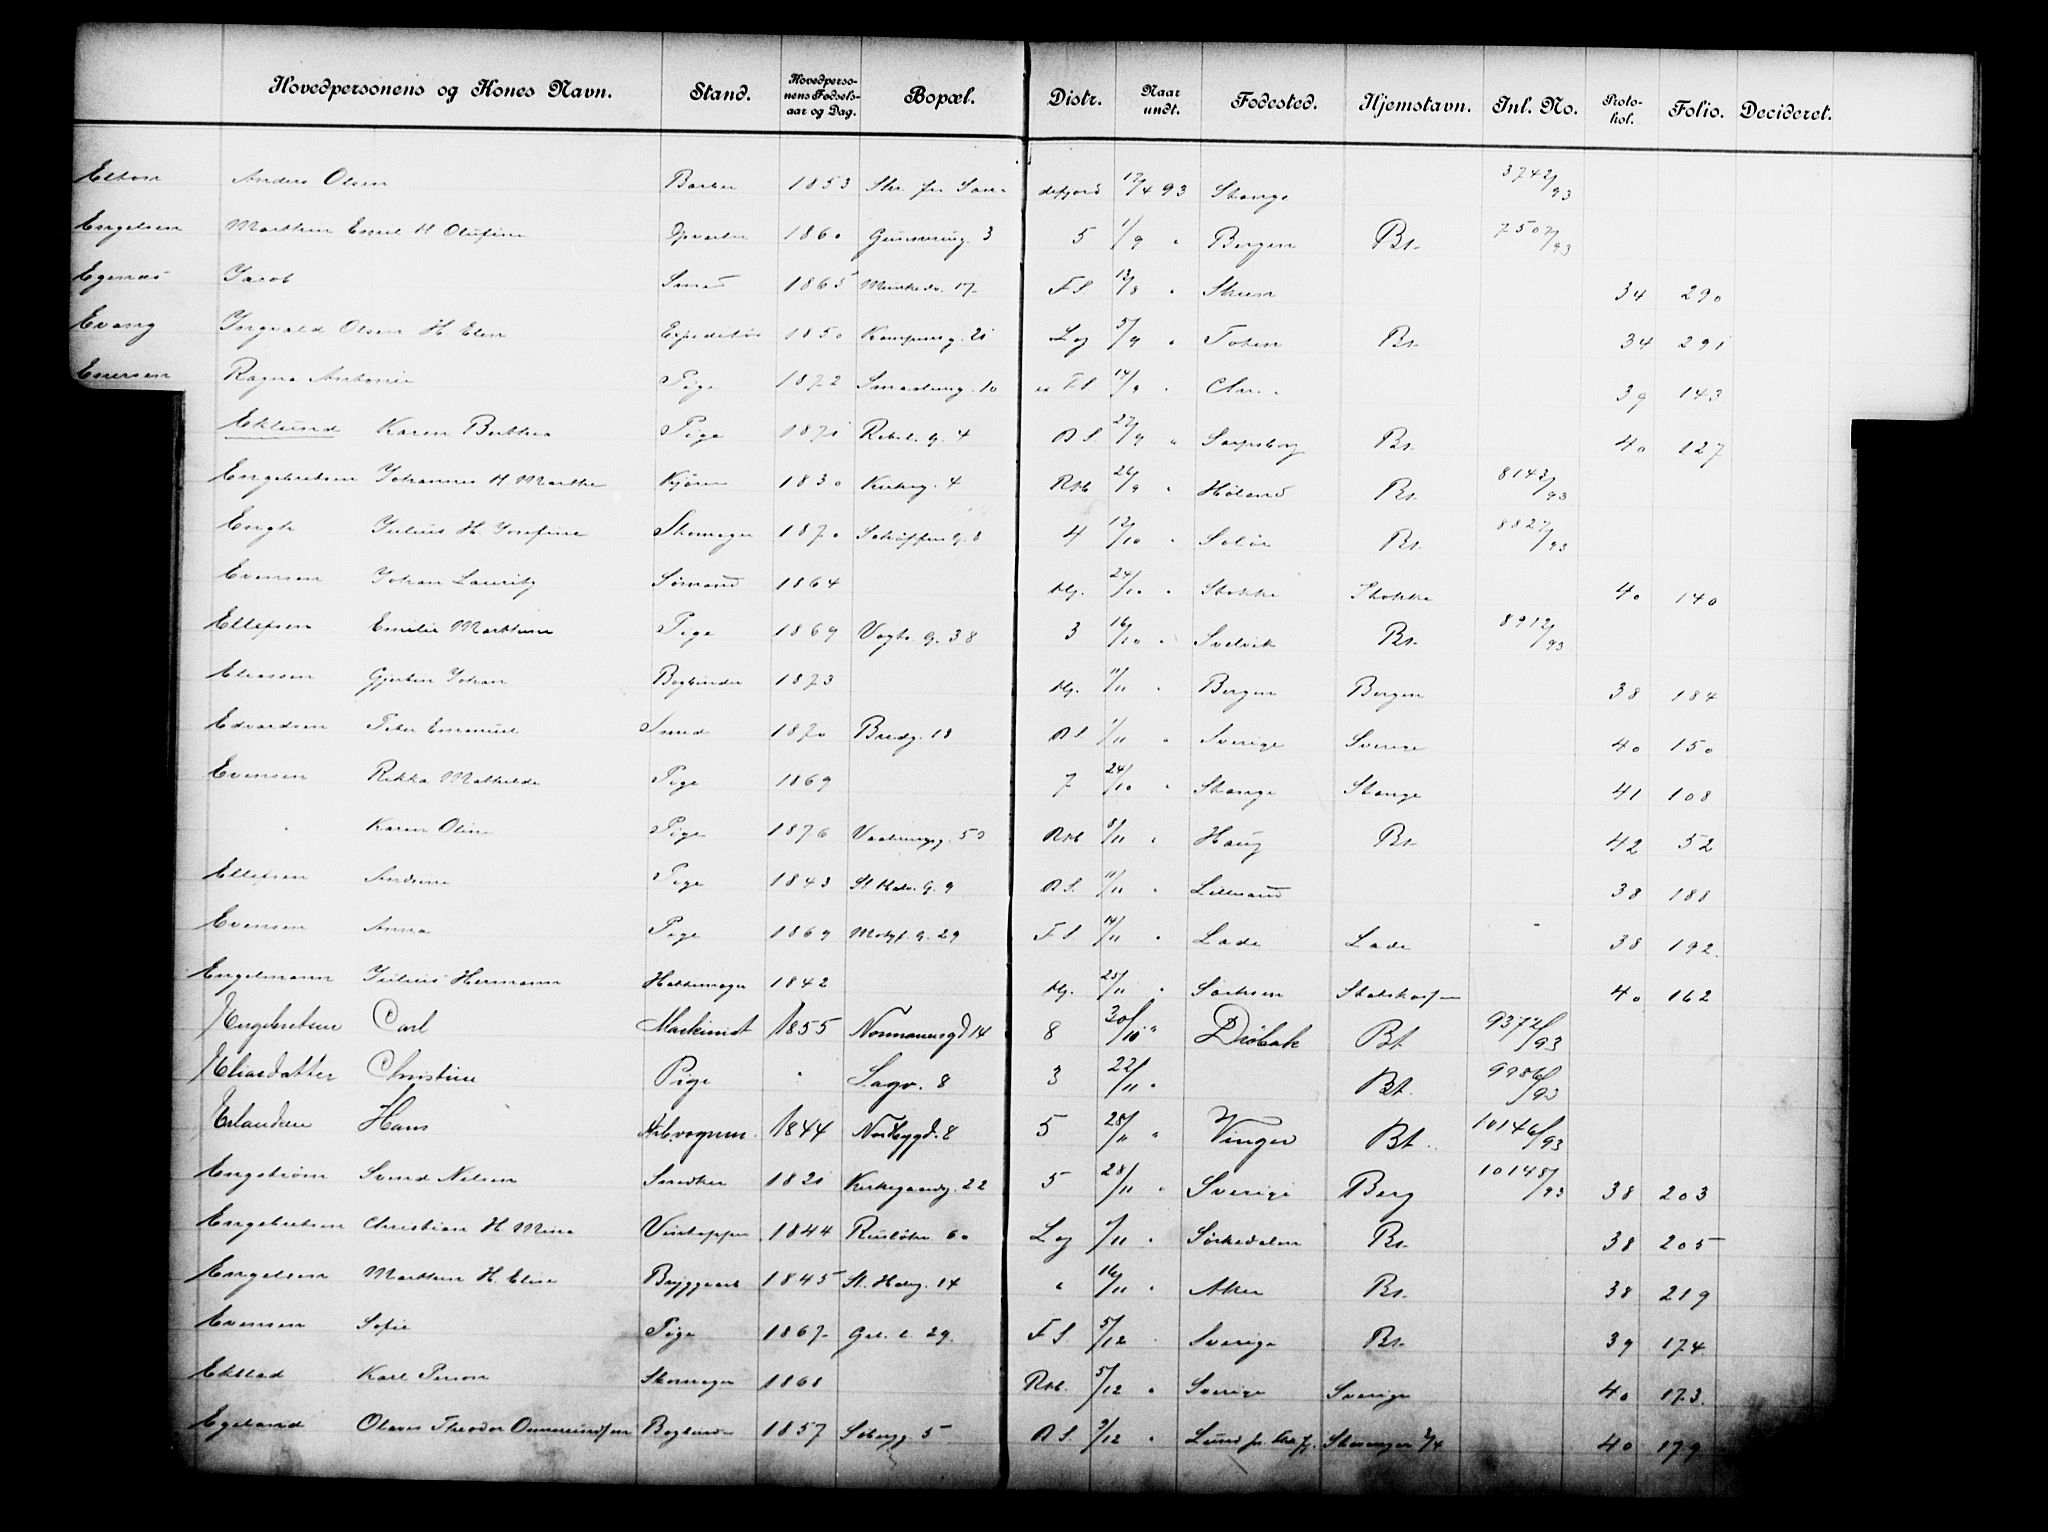 Hovedpersonens og Kones Navn. Stand. Hovedperso-nens Fødsels-aar og Dag. Bopæl. Distr. Naar undt. Fødested. Hjemstavn. Inl. No. Proto-kol. Folio. Decideret.
Anders Olsen 1853 12/4 93 Stange 3742/93
Engelsen Marthin Emil H Olufine 1860 3 5 1/9 " Bergen Bt. 7507/93
Egenæs Jacob 1865 17 F.S. 12/8 " 34 290
Evang Ingvald Olsen H Elen Expeditør 1850 Kampensg. 21 Log 5/9 " Toten Bt. 34 291
Enersen Ragna Antonie Pige 1872 10 F.S. 14/9 " Chr. " 39 143
Eklund Karen Berthea Pige 1871 4 B S. 27/9 " Sarpsborg Bt. 40 127
Engebretsen Johannes H Marthe Kjører 1830 Kirkeg. 4 Rkb 26/9 " Høland Bt. 8143/93
Engh Julius H. Josefine Skomager 1870 8 4 12/10 " Solør Bt. 8827/93
Evensen Johan Lauritz Sømand 1864 Hj. 24/10 " Stokke Stokke 40 140
Ellefsen Emilie Marthine Pige 1869 Vogts G. 38 3 16/10 " Svelvik Bt. 8912/93
Eliassen Gjerten Johan Bogbinder 1873 Hj. 11/11 " Bergen Bergen 38 184
Edvardsen Peter Emanuel Smed 1870 Bredg. 18 B S. 1/11 " Sverige Sverige 40 150
Evensen Rikka Mathilde Pige 1869 7 24/10 " Stange Stange 41 108
" Karen Oline Pige 1876 Rkb 8/11 " Haug Bt 42 52
Ellefsen Andrine Pige 1843 St Halv. G. 9 B S. 11/11 " Lillesand 38 188
Evensen Anna Pige 1869 29 F S. 14/11 " Lade Lade 38 192.
Engelmann Julius Hermann Hattemager 1842 Hj. 25/11 " Sachsen Statskassen 40 162
Engebretsen Carl Maskinist 1855 Normannsgd 14 8 30/10 " Drøbak Bt. 9372/93
Eliasdatter Christine Pige " Sagv. 8 3 22/11 " Bt.
Erlandsen Hans 1844 Nordbygd. 8 5 28/11 " Vinger Bt. 10146/93
Engstrøm Svend Nilsen Snedker 1821 Kirkegaardg. 22 5 28/11 " Sverige Berg 10148/93 38 203
Engebretsen Christian H Mina Vintapper 1844 Ruseløkv. 60 Log /11 " Sørkedalen Bt. 38 205
Engelsen Marthin H. Elise Bryggearb 1845 St. Halvg. 14 " 16/11 " Aker Bt. 38 219
Evensen Sofie Pige 1867 29. F S. 5/12 Sverige Bt. 39 174.
Ekblad Karl Person Skomager 1868 Rkb. 5/12 " Sverige Sverige 40 173.
Egeland Olaves Theodor Ommundsen Bogbinder 1857 5 B S. 9/12 " Lund Stavanger 40 179